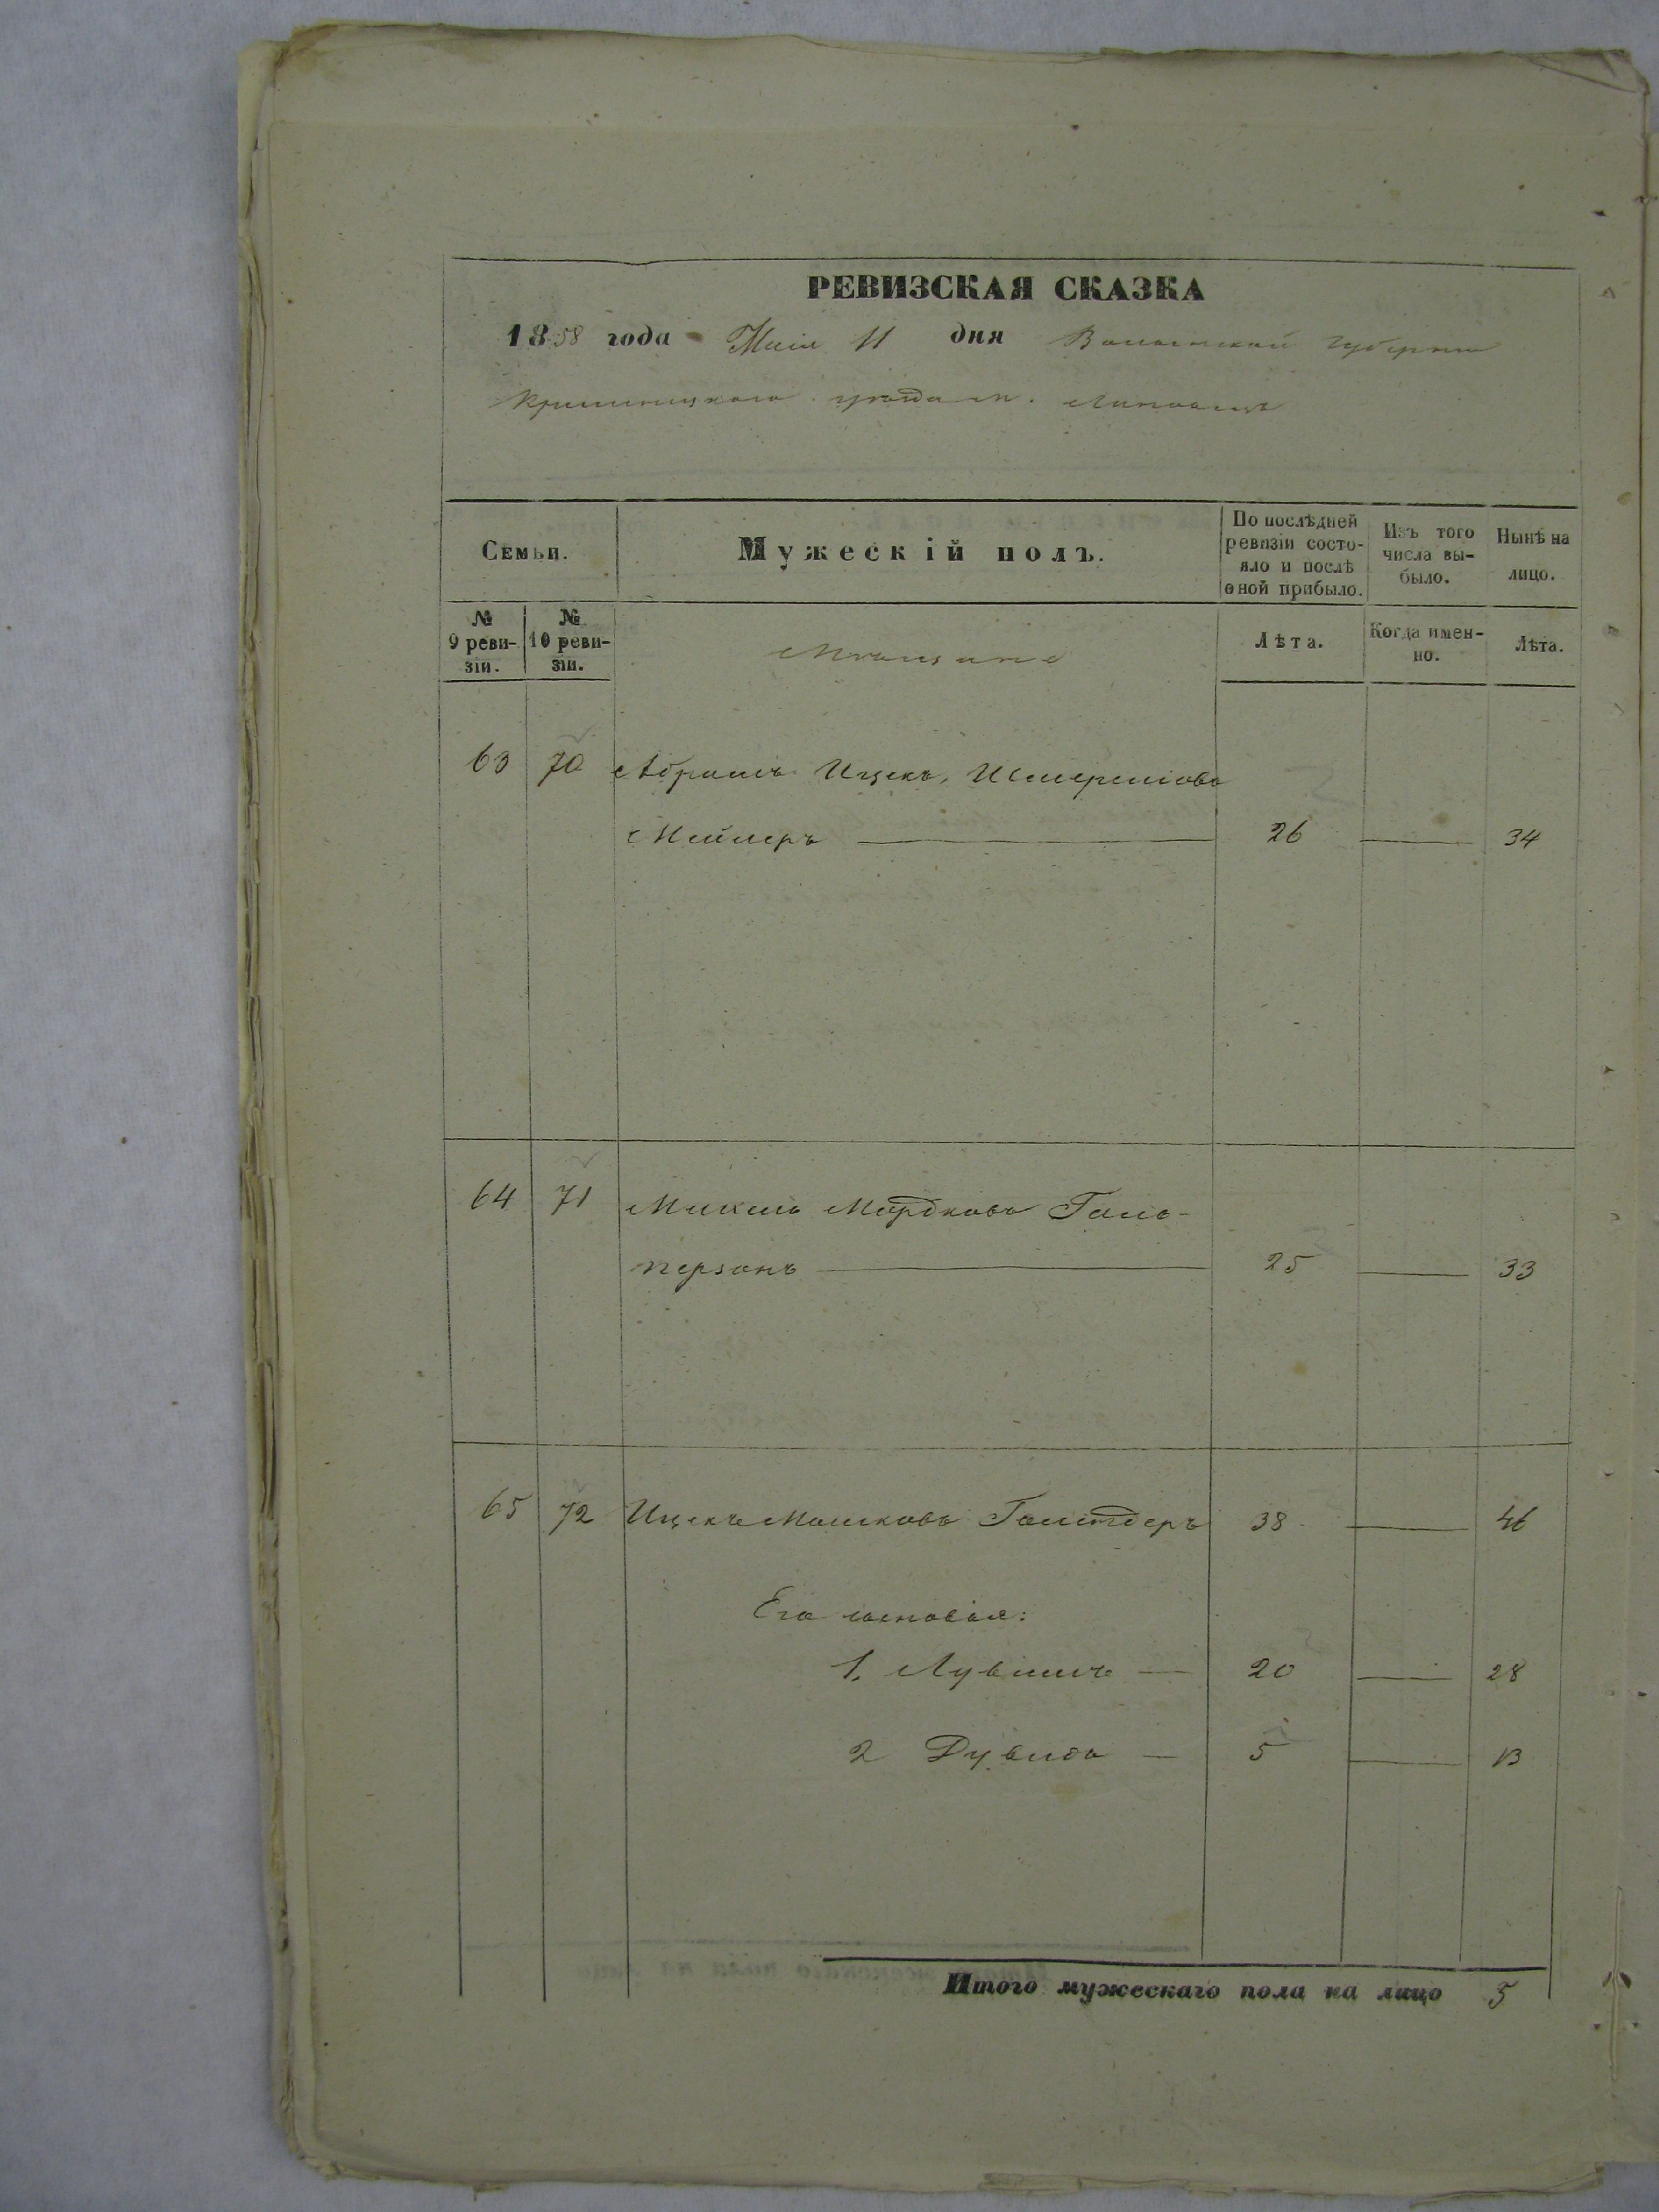 РЕВИЗСКАЯ СКАЗКА
1858 года Маія 11 дня Волынской губерніи
Кременецкаго уѣзда м.
Семьи.
Мужескій полъ.
По послѣдней ревизіи состояло и послѣ оной прибыло.
Изъ того числа выбыло.
Нынѣ на лицо.
№ 9 ревизіи.
№ 10 ревизіи.
Мѣщане
Лѣта.
Когда именно.
Лѣта.
63 70 Абрамъ Ицекъ
26 34
64 71 Микель Мордковъ Галь-
перзонъ 25 33
65 72 Ицекъ Мошковъ 38 46
Его сыновья:
1, 20 28
2 Дувидъ 5 13
Итого мужескаго пола на лицо 5